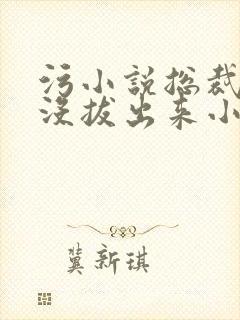 污小说总裁
没拔出来小
冀新琪